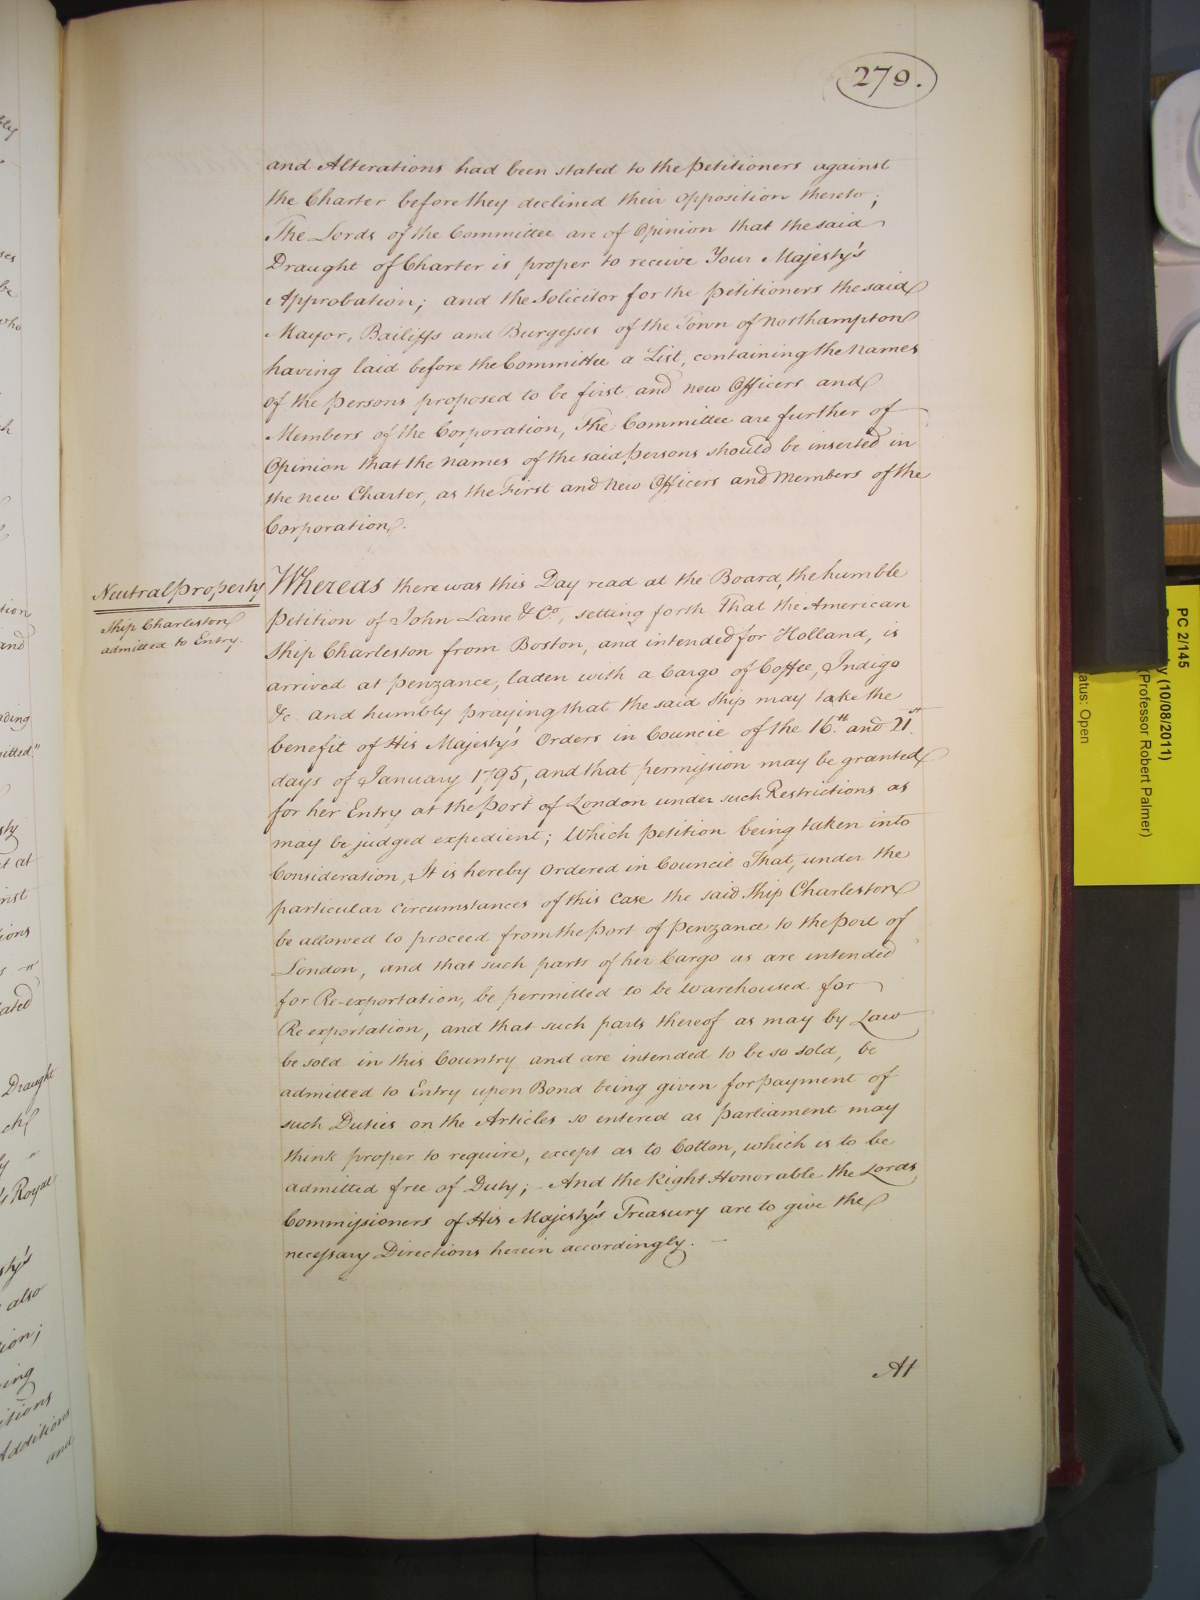 279.
and Alterations had been stated to the Petitioners against
the Charter before they declined their opposition thereto;
The Lords of the Committee are of Opinion that the said
Draught of Charter is proper to receive Your Majesty's
Approbation; and the Solicitor for the Petitioners the said
Mayor, Bailiffs and Burgesses of the Town of Northampton
having laid before the Committee a List, containing the Names
of the Persons proposed to be first and new Officers and
Members of the Corporation, The Committee are further of
Opinion that the Names of the said Persons should be inserted in
the new Charter, as the First and New Officers and Members of the
Corporation.
Neutral property
Ship Charleston
admitted to Entry.
Whereas there was this Day read at the Board, the humble
Petition of John Lane & Co., setting forth That the American
Ship Charleston from Boston, and intended for Holland, is
arrived at Penzance, laden with a Cargo of Coffee, Indigo
&c. and humbly praying that the said Ship may take the
benefit of His Majesty's Orders in Council of the 16th. and 21st.
days of January 1795, and that permission may be granted
for her Entry at the Port of London under such Restrictions as
may be judged expedient; Which Petition being taken into
Consideration, It is hereby Ordered in Council That, under the
particular circumstances of this Case the said Ship Charleston
be allowed to proceed from the Port of Penzance to the Port of
London, and that such parts of her Cargo as are intended
for Re-exportation, be permitted to be Warehoused for
Re exportation, and that such parts thereof as may by Law
be sold in this Country and are intended to be so sold, be
admitted to Entry upon Bond being given for payment of
such Duties on the Articles so entered as Parliament may
think proper to require, except as to Cotton, which is to be
admitted free of Duty; - And the Right Honorable the Lords
Commissioners of His Majesty's Treasury are to give the
necessary Directions herein accordingly. -
At
PC 2/145
(10/08/2011)
(Professor Robert Palmer)
atus: Open
tion
and
nitted."
Draught
's Royal
also
ing
Additions
and